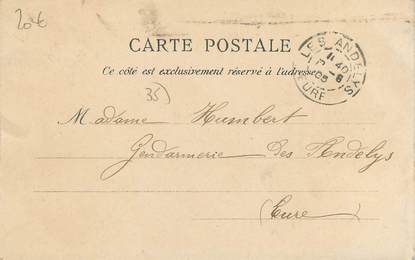 20€
CARTE POSTALE
Ce côté est exclusivement réservé à l'adresse
35)
LES ANDELYS
EURE
Madame Humbert
Gendarmerie des Andelys
(Eure)